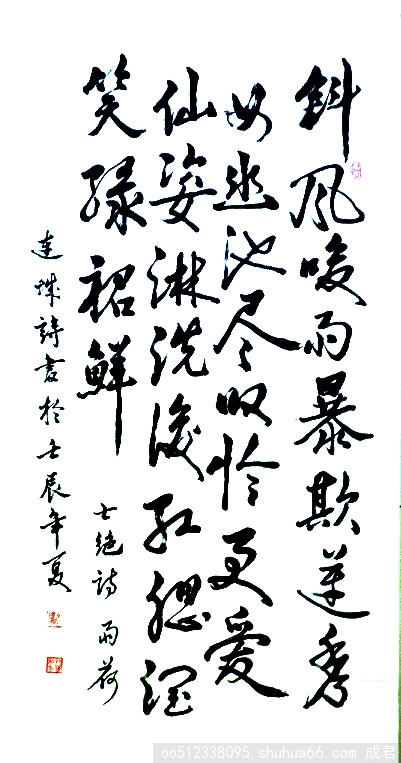 斜风唆雨暴欺莲秀
女幽池尽叹怜更爱
仙姿淋洗后红腮润
笑绿裙鲜
七绝诗 雨荷
詩書於壬辰年夏
oo512338095. shuhua66.com 成君